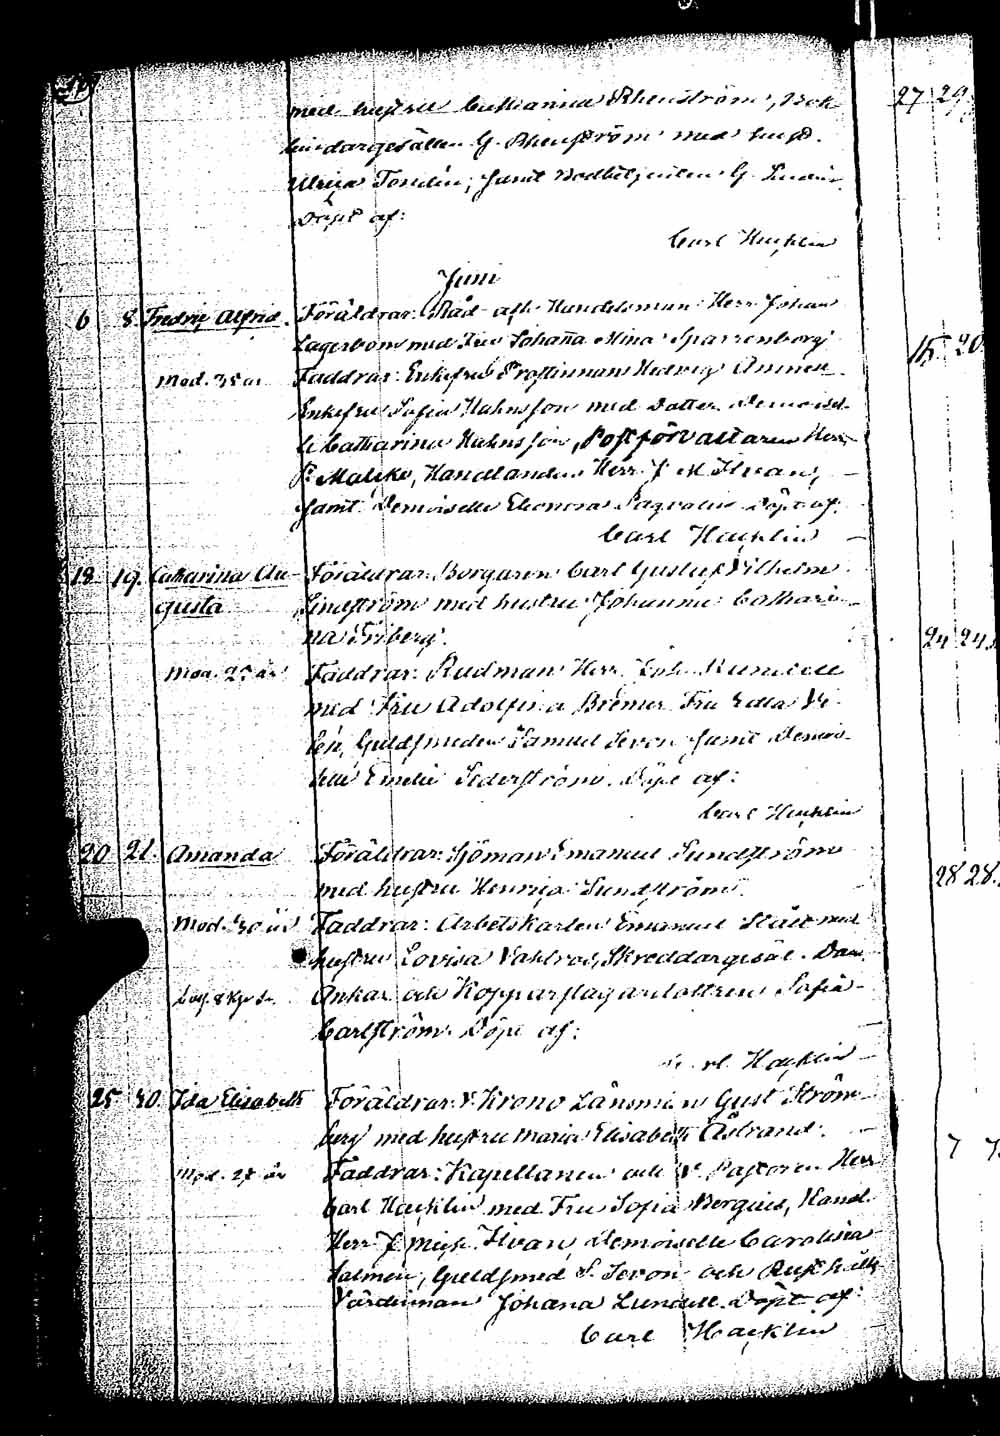 med hustru Catharina Rhenström, Bok
bindargesällen G. Rhenström med hust.
Ulrica Tondin, samt Bodbetjenten G.
Döpt af:
Carl Hacklin
Juni
6 8. Fredric Alfrid. Föräldrar: Råd- Handelsman Herr Johan
Lagerbom med Fru Johanna Mina Sparrenborg
Mod. 35 år Faddrar: Enkefru Prostinnan Hedvig
Enkefru Sofia Hahnsson med Dotter Demoisel-
le Catharina Hahnsson, Postförvaltaren Herr
Maleko, Handlanden Herr J. M. Ilvan,
samt Demoiselle Eleonora Döpt af:
Carl Hacklin
18 19. Catharina Au- Föräldrar: Borgaren Carl Gustaf Vilhelm
gusta Lindström med hustru Johanna Cathari-
na Friberg.
Mod. 27 år Faddrar: Rådman Herr Joh.
med Fru Adolfina Bremer Fru Edla
Guldsmeden Samuel Levon samt Demoi-
selle Emelie Sederström. Döpt af:
Carl Hacklin
20 21. Amanda Föräldrar: Sjöman Emanuel Sundström
med hustru Henrica Sundström.
Mod. 30 år Faddrar: Arbetskarlen Emanuel med
hustru Lovisa Vahlroos, Skreddargesäl. Dan.
Ankar och Kopparslagardottren Sofia
Carlström. Döpt af:
Carl Hacklin
25 30. Ida Elisabeth Föräldrar: V. Krono Länsman Gust Ström-
berg med hustru Maria Elisabeth Åstrand.
Mod. 27 år Faddrar: Kapellanen och V. Pastoren Herr
Carl Hacklin med Fru Sofia Bergius, Hand.
Herr J. Mich. Ilvan, Demoiselle Carolina
Salmen, Guldsmed S. Levon och
Värdinnan Johana Lundell. Döpt af:
Carl Hacklin
27 29
15 20
24 24
28 28.
7